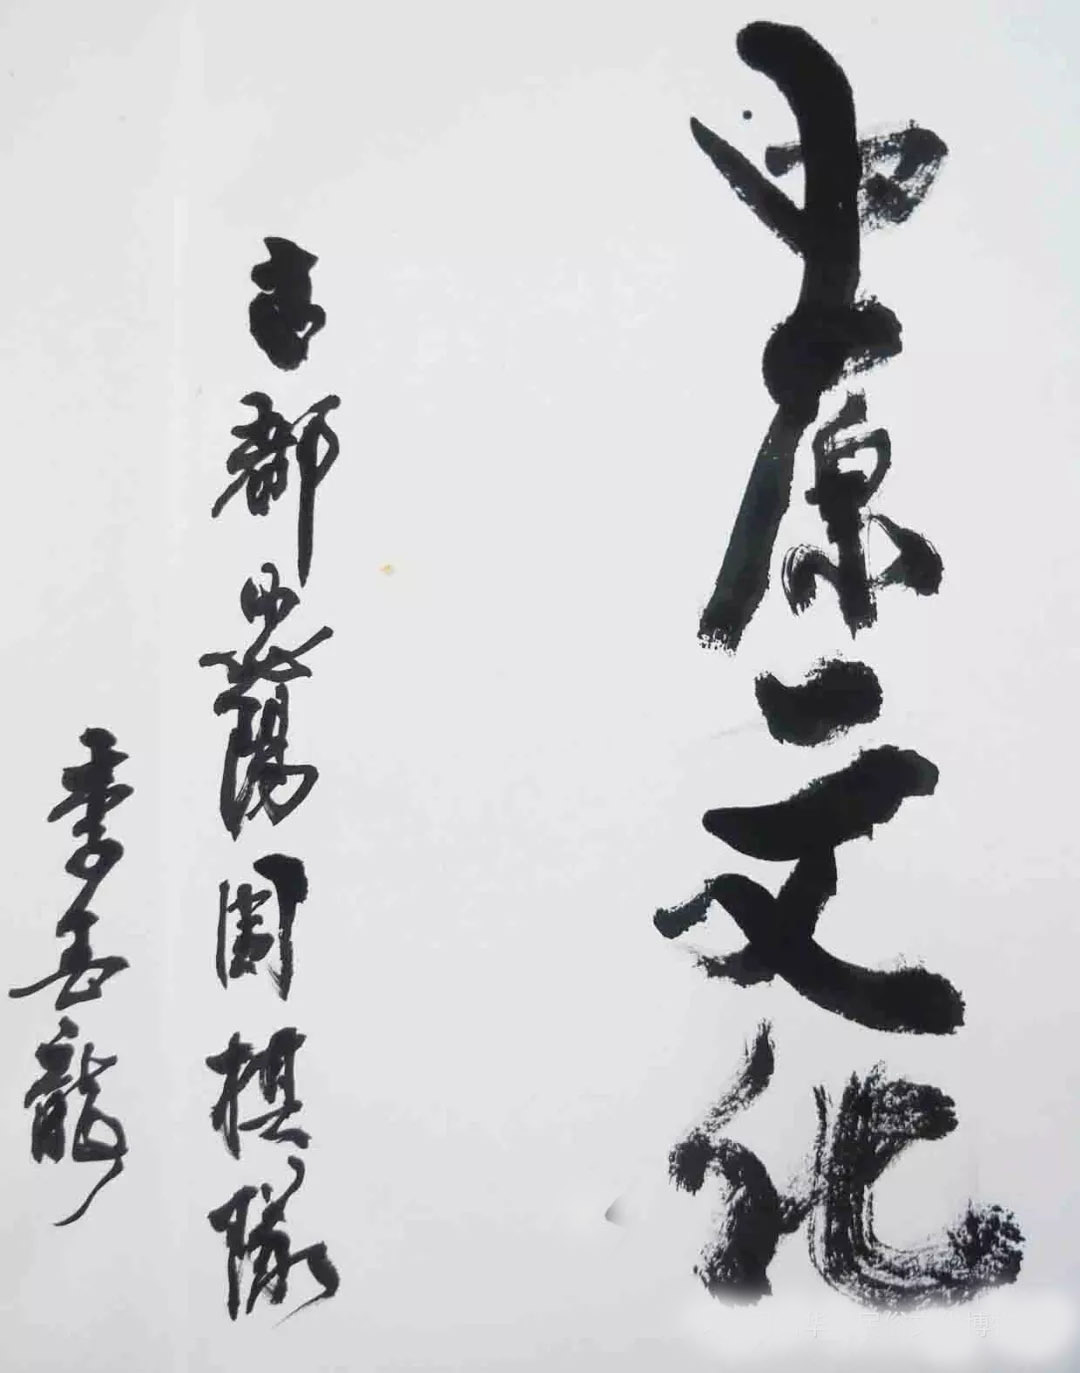 中原文化
古都陽圍棋隊
李龍